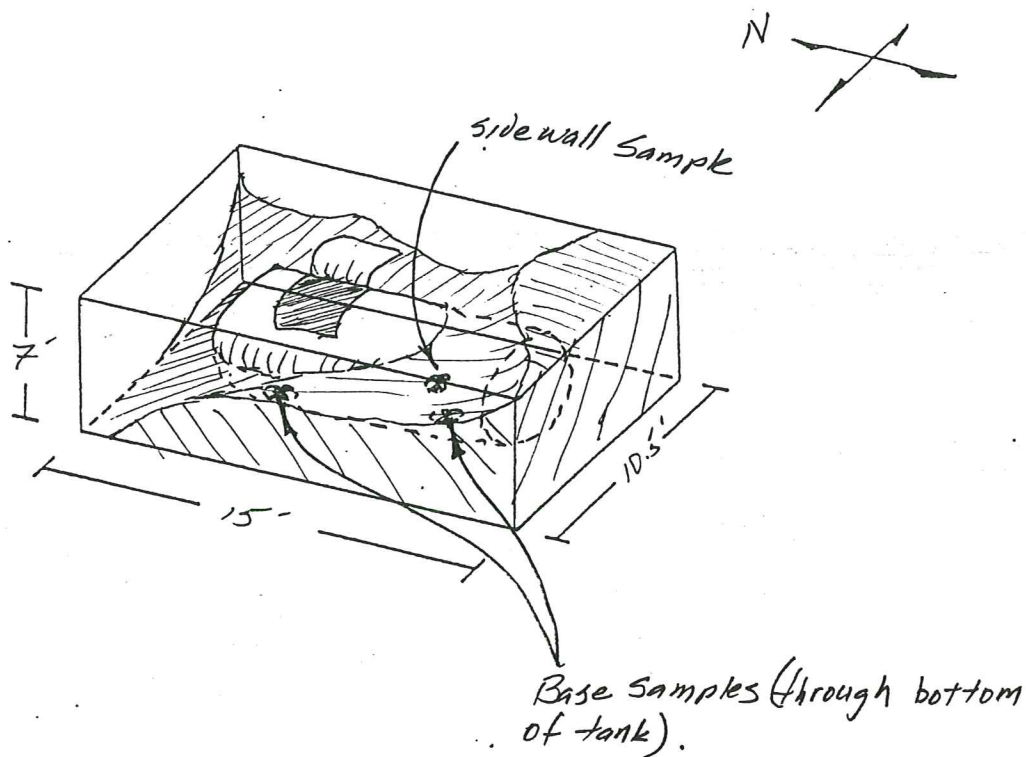 N
sidewall Sample
7'
10.5'
15'
Base Samples (through bottom
of tank).